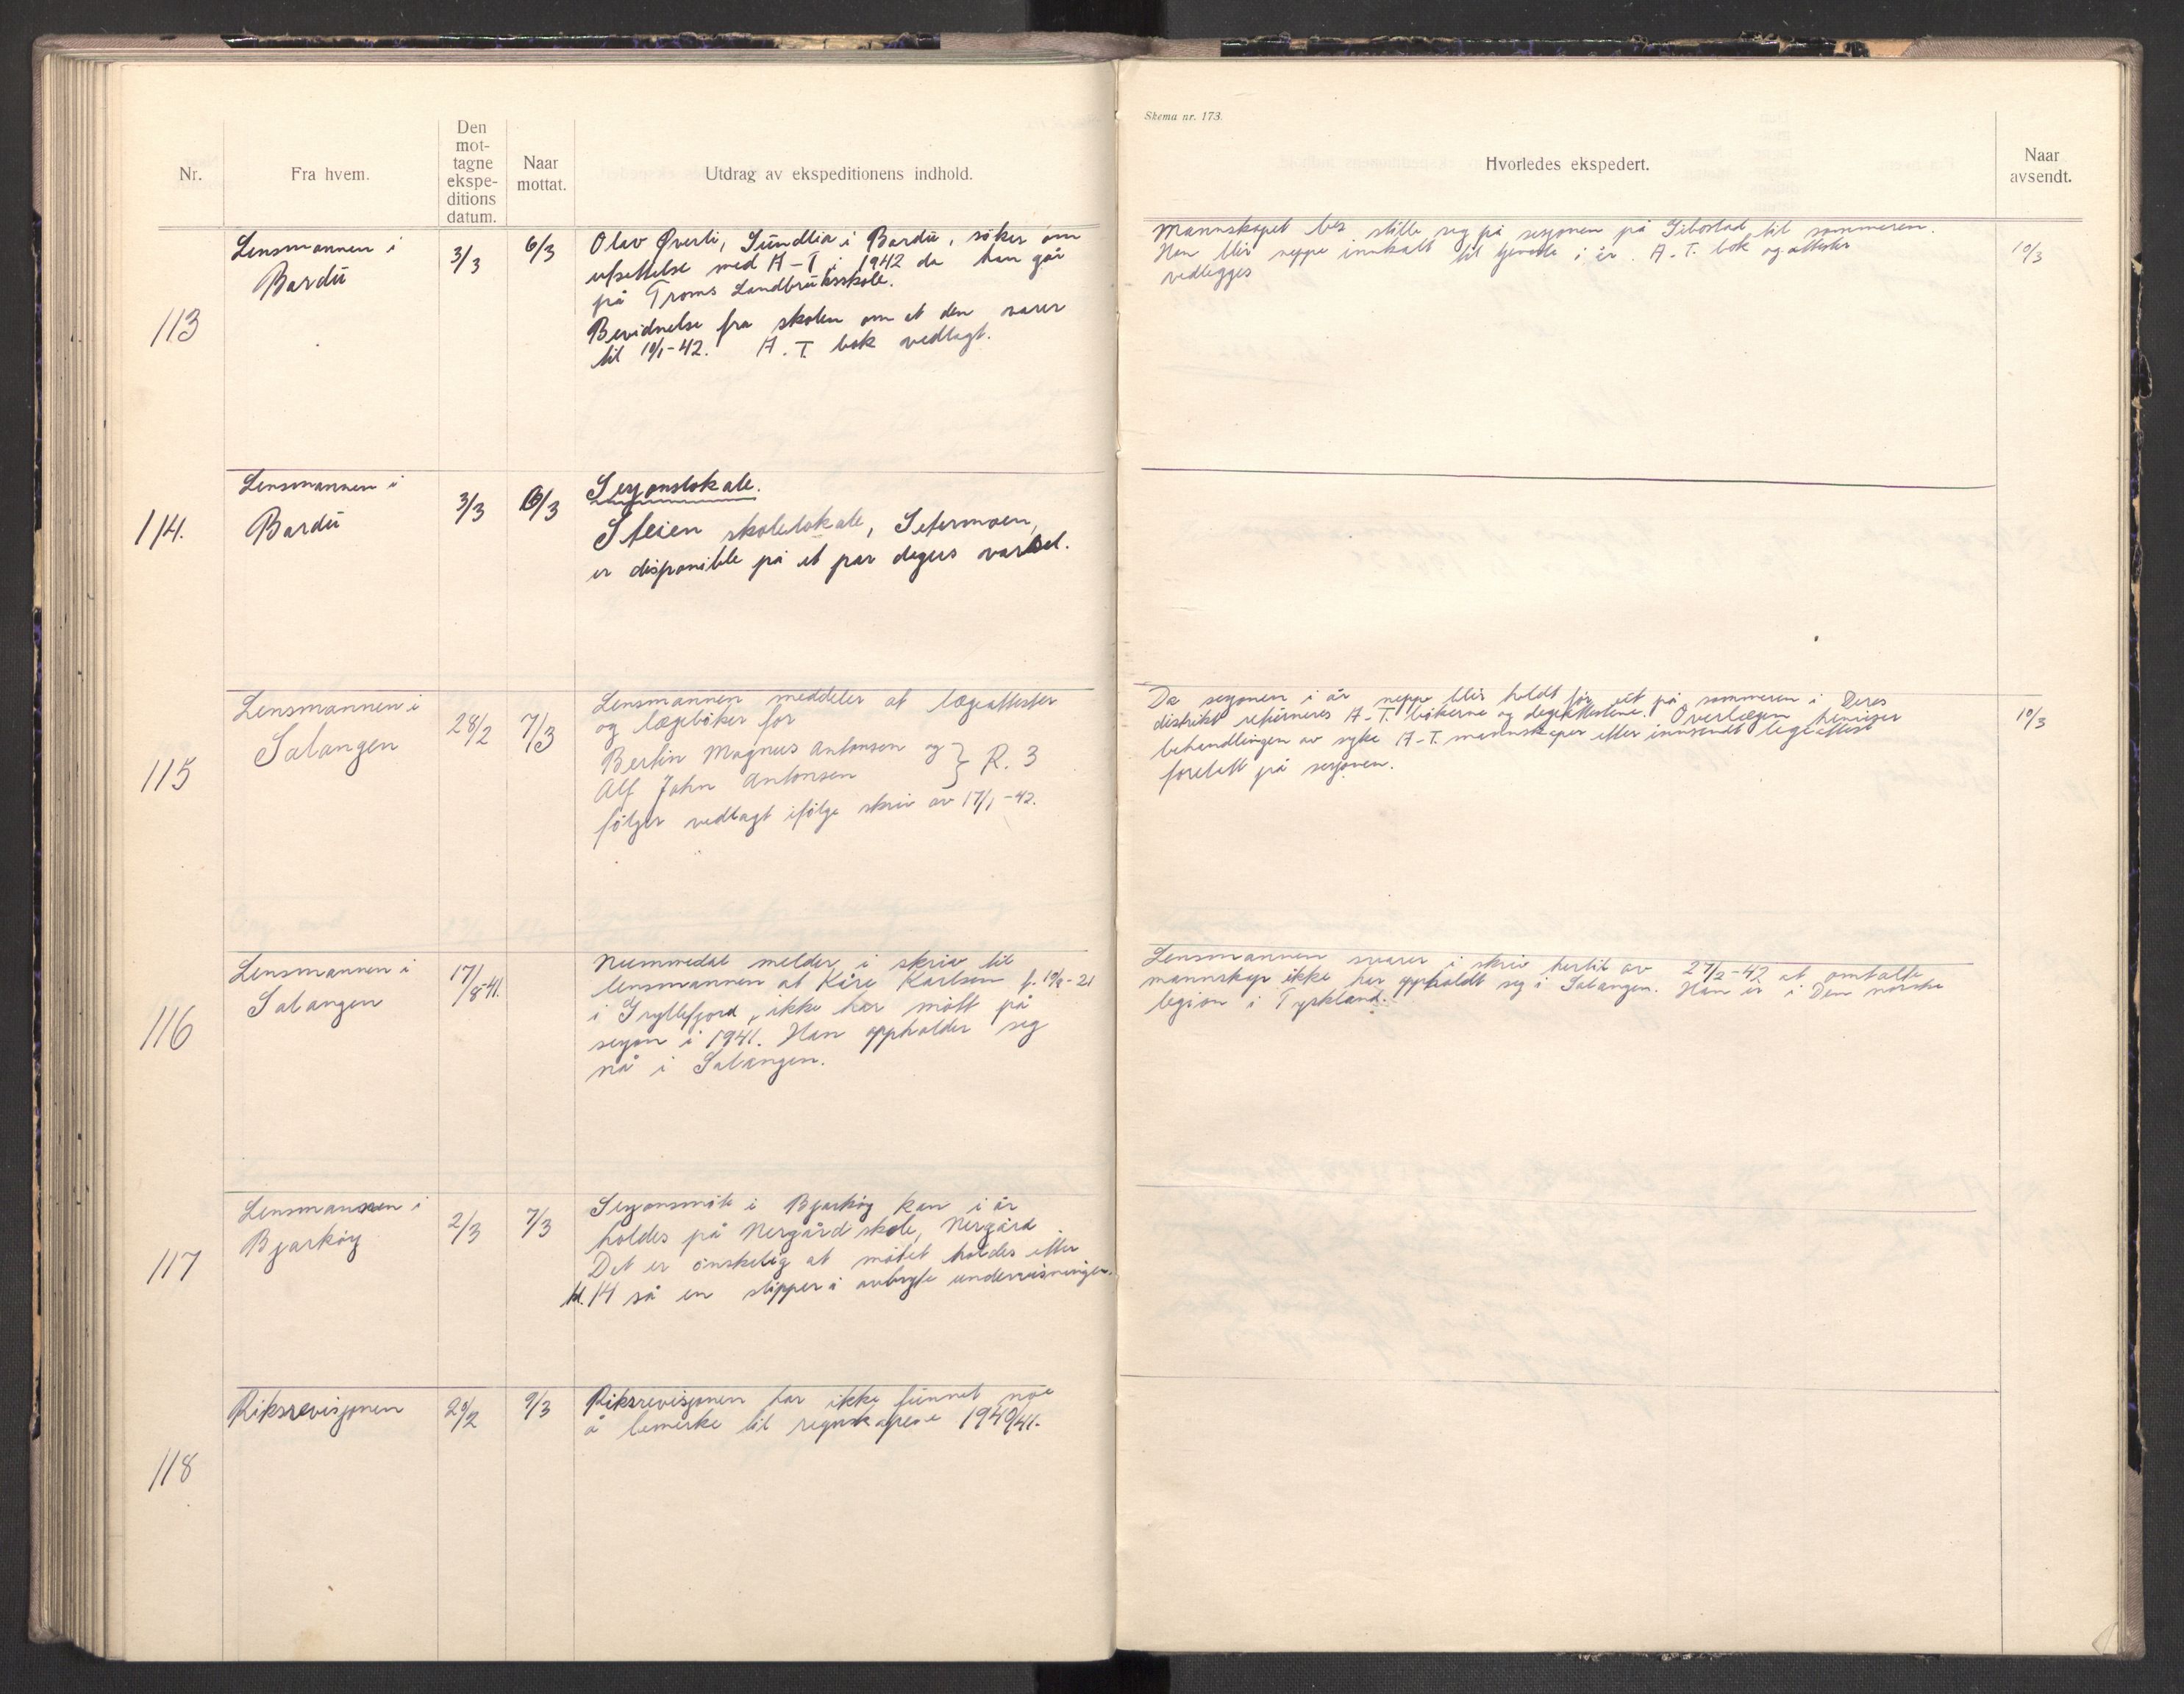 Nr.
Fra hvem.
Den
mot-
tagne
ekspe-
ditions
datum.
Naar
mottat.
Utdrag av ekspeditionens indhold.
Skema nr. 173.
Hvorledes ekspedert.
Naar
avsendt.
113
Lensmannen i
Bardu
3/3
6/3
Olav Øverli, Sundlia i Bardu, søker om
utsettelse med A-T i 1942 da han går
på Troms Landbruksskole.
Bevidnelse fra skolen om at den varer
til 10/1-42. A.T. bok vedlagt.
Mannskapet bes stille seg på sesjonen på Sibostad til sommeren.
Han blir neppe innkalt til tjeneste i år. A.T. bok og attester
vedlegges
10/3
114.
Lensmannen i
Bardu
3/3
6/3
Sesjonslokale.
Steien skolelokale, Setermoen,
er disponible på et par dagers varsel.
115
Lensmannen i
Salangen
28/2
7/3
Lensmannen meddeler at lægeattester
og lægebøker for
Bertin Magnus Antonsen og
Alf John Antonsen } R. 3
følger vedlagt ifølge skriv av 17/1-42.
Da sesjonen i år neppe blir holdt før ut på sommeren i Deres
distrikt returneres A-T. bøkerne og legeattestene. Overlægen henviser
behandlingen av syke A-T. mannskaper etter innsendt legeattest
foretatt på sesjonen.
10/3
116
Lensmannen i
Salangen
17/8-41.
Nummedal melder i skriv til
lensmannen at Kåre Karlsen f. 19/9-21
i Gryllefjord, ikke har møtt på
sesjon i 1941. Han oppholder seg
nå i Salangen.
Lensmannen svarer i skriv hertil av 27/2-42 at omtalte
mannskap ikke har oppholdt seg i Salangen. Han er i Den norske
legion i Tyskland.
117
Lensmannen i
Bjarkøy
2/3
7/3
Sesjonsmøte i Bjarkøy kan i år
holdes på Nergård skole, Nergård.
Det er ønskelig at møtet holdes etter
kl. 14 så en slipper å avbryte undervisningen.
118
Riksrevisjonen
20/2
9/3
Riksrevisjonen har ikke funnet noe
å bemerke til regnskapene 1940/41.